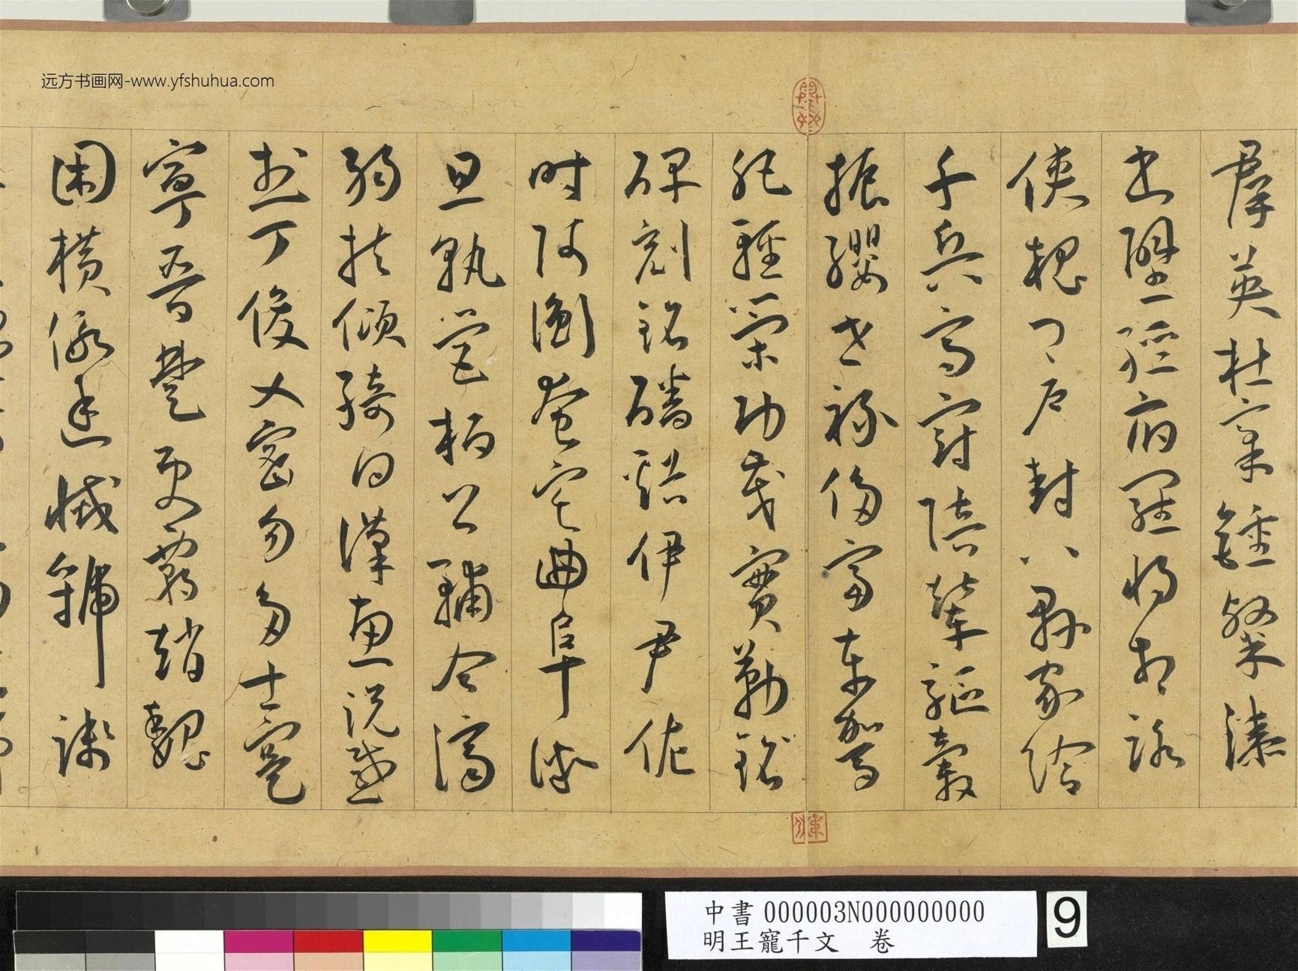 远方书画网-www.yfshuhua.com
群英杜稾鍾隸漆
書壁經府羅將相路
俠槐卿户封八縣家給
千兵高冠陪輦驅轂
振纓世祿侈富車駕
肥輕策功茂實勒銘
碑刻銘磻溪伊尹佐
時阿衡奄宅曲阜微
旦孰營桓公輔合濟
弱扶傾綺回漢惠說感
武丁俊乂密勿多士寔
寧晉楚更霸趙魏
困橫假途滅虢踐
中書 000003N000000000
明王寵千文 卷
9